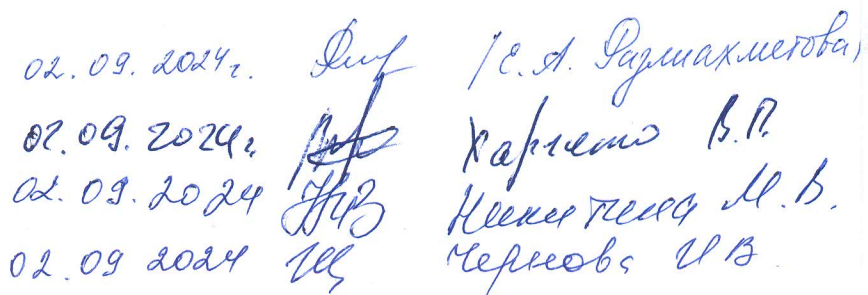 02.09.2024г. (Е.А. Разлиахметова)
02.09.2024г. В.П.
02.09.2024 Никитина М.В.
02.09 2024 Чернова И В.